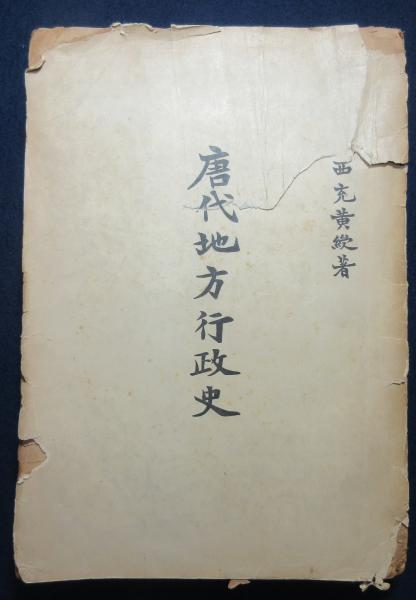 西充黄綬著
唐代地方行政史